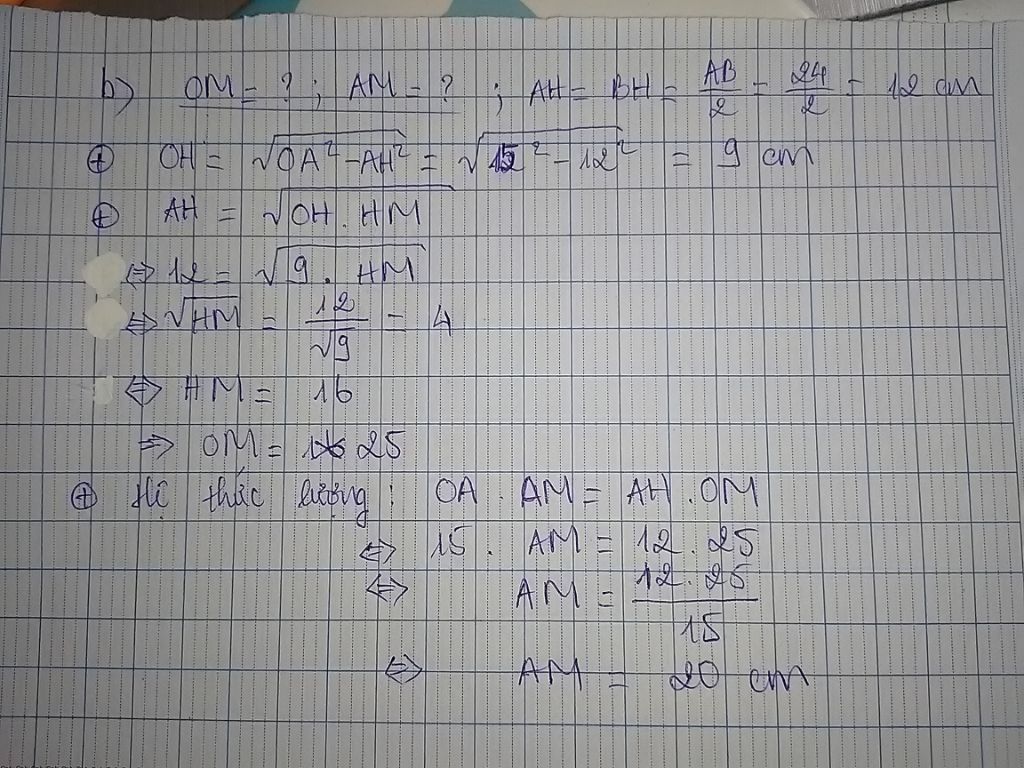 b) OM = ? ; AM = ? ; AH = BH = AB/2 = 24/2 = 12 cm
⊕ OH = √(OA² - AH²) = √(15² - 12²) = 9 cm
⊕ AH = √(OH . HM)
⇔ 12 = √(9 . HM)
⇔ √HM = 12/√9 = 4
⇔ HM = 16
⇒ OM = 25
⊕ Hệ thức lượng : OA . AM = AH . OM
⇔ 15 . AM = 12 . 25
⇔ AM = 12 . 25/15
⇔ AM = 20 cm